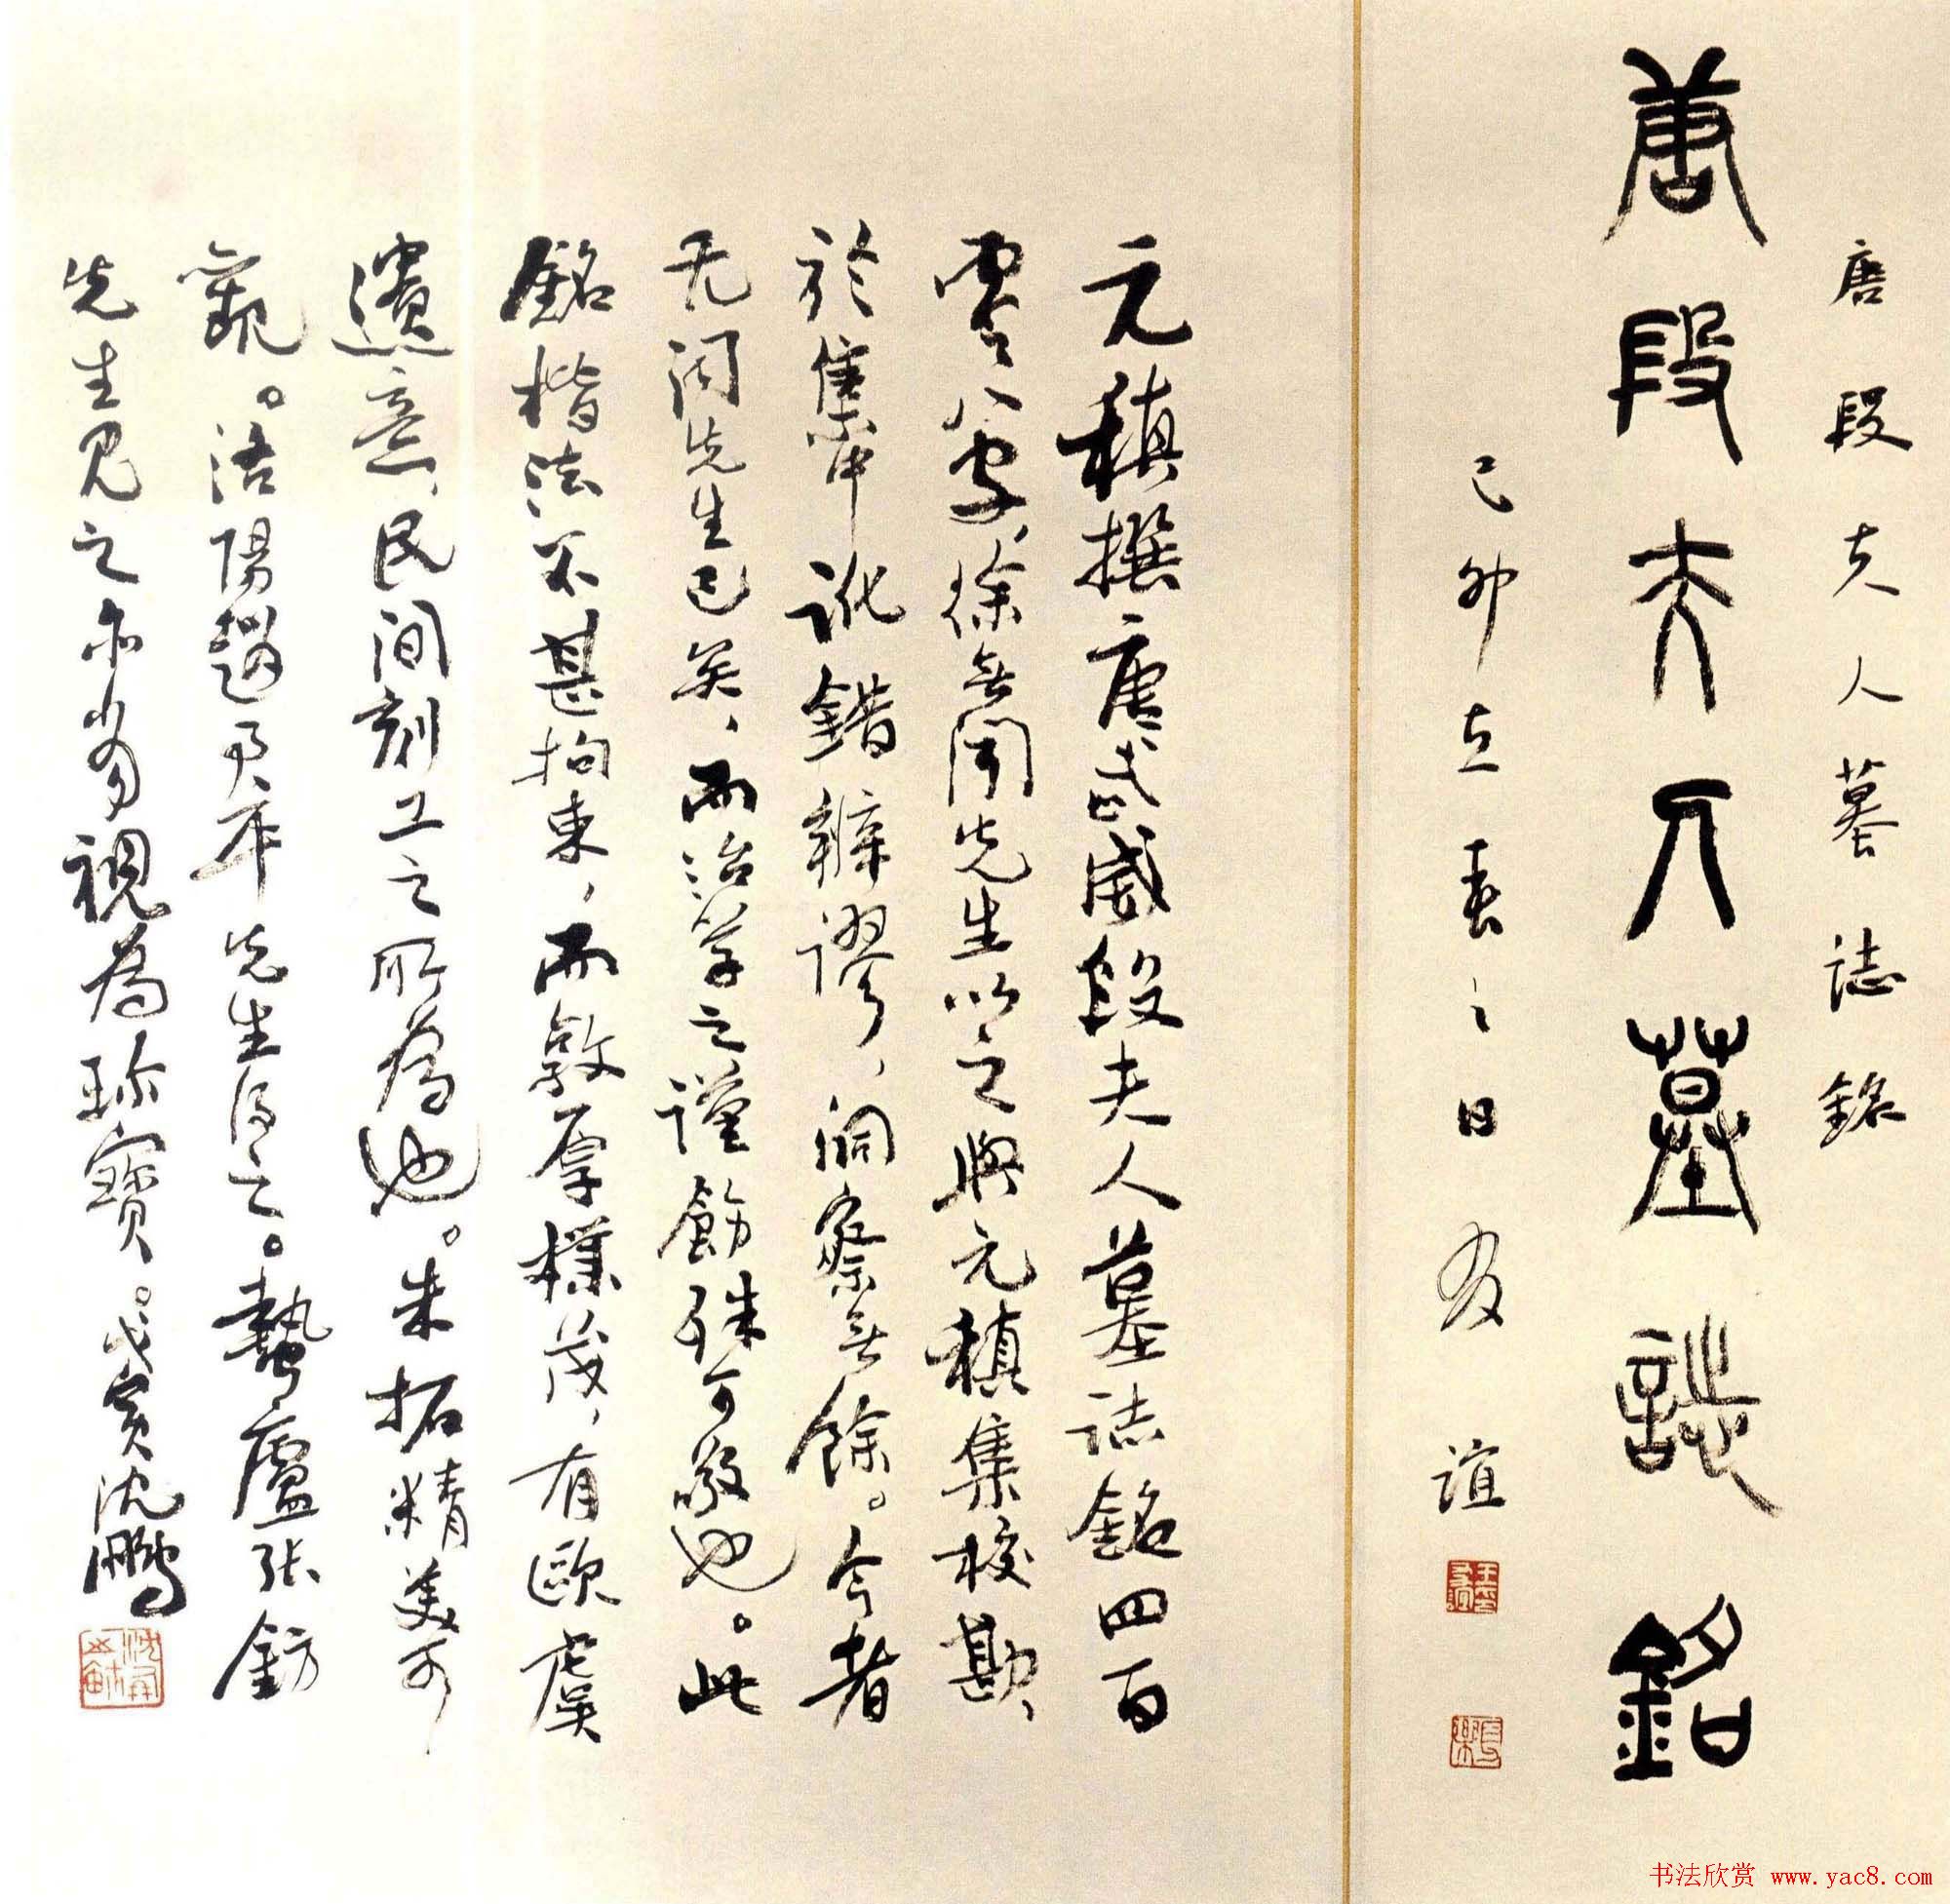 唐段夫人墓誌銘
唐段夫人墓誌銘
己卯立春之日友誼
元稹撰唐武威段夫人墓誌銘四百
零八字、徐無聞先生以之與元稹集校勘、
於集中訛錯辨謬，洞察無餘。今者
无聞先生已矣，而治學之謹飭殊可敬也。此
銘楷法不甚拘束，而敦厚樸茂，有歐虞
遺意，民間刻工之所為也。朱拓精美可
觀。洛陽趙君平先生得之。蟄廬張鈁
先生見之亦當視為珍寶。戊寅沈鵬
书法欣赏 www.yac8.com